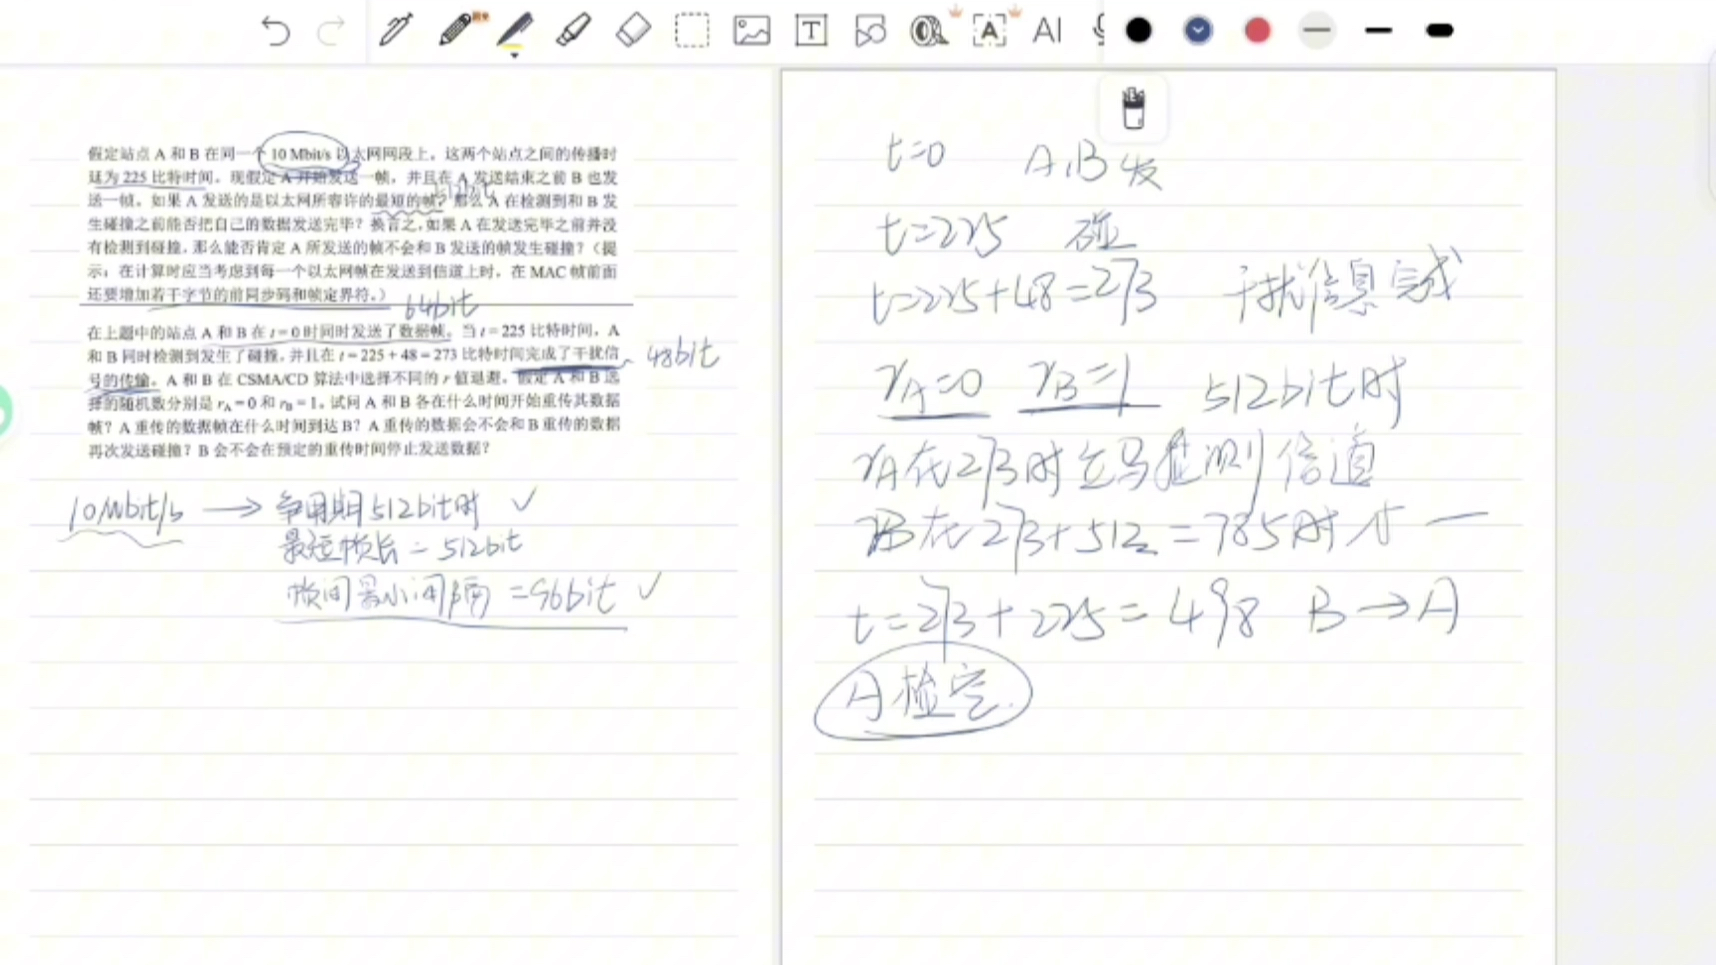 T
A
AI
假定站点 A 和 B 在同一个 10 Mbit/s 以太网网段上。这两个站点之间的传播时
延为 225 比特时间。现假定 A 开始发送一帧，并且在 A 发送结束之前 B 也发
送一帧。如果 A 发送的是以太网所容许的最短的帧，那么 A 在检测到和 B 发
生碰撞之前能否把自己的数据发送完毕？换言之，如果 A 在发送完毕之前并没
有检测到碰撞，那么能否肯定 A 所发送的帧不会和 B 发送的帧发生碰撞？（提
示：在计算时应当考虑到每一个以太网帧在发送到信道上时，在 MAC 帧前面
还要增加若干字节的前同步码和帧定界符。）
512bit
64bit
在上题中的站点 A 和 B 在 t = 0 时同时发送了数据帧。当 t = 225 比特时间，A
和 B 同时检测到发生了碰撞，并且在 t = 225 + 48 = 273 比特时间完成了干扰信
号的传输。A 和 B 在 CSMA/CD 算法中选择不同的 r 值退避。假定 A 和 B 选
择的随机数分别是 rA = 0 和 rB = 1。试问 A 和 B 各在什么时间开始重传其数据
帧？A 重传的数据帧在什么时间到达 B？A 重传的数据会不会和 B 重传的数据
再次发送碰撞？B 会不会在预定的重传时间停止发送数据？
48bit
10Mbit/s → 争用期512bit时 ✓
最短帧长 = 512bit
帧间最小间隔 = 96bit ✓
t=0 A,B发
t=225 碰
t=225+48=273 干扰信息完成
rA=0 rB=1 512bit时
rA在273时立马检测信道
rB在273+512=785时才一
t=273+225=498 B→A
A检空